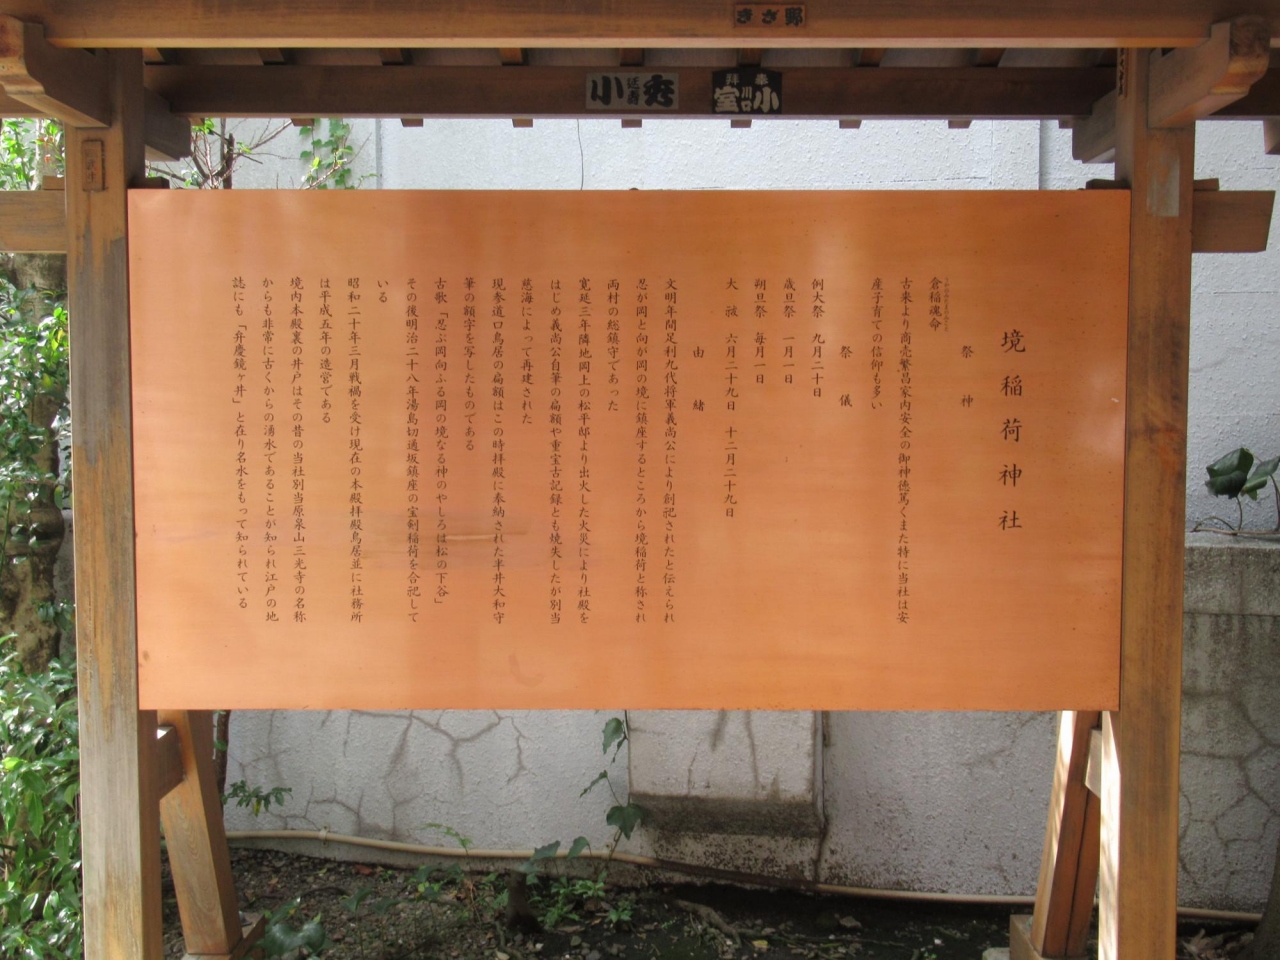 野ざき
小延寿秀
奉拝
川口
小室
境稲荷神社
祭神
倉稲魂命
古来より商売繁昌家内安全の御神徳篤くまた特に当社は安
産子育ての信仰も多い
祭儀
例大祭 九月二十日
歳旦祭 一月一日
朔旦祭 毎月一日
大祓 六月二十九日 十二月二十九日
由緒
文明年間足利九代将軍義尚公により創祀されたと伝えられ
忍が岡と向が岡の境に鎮座するところから境稲荷と称され
両村の総鎮守であった
寛延三年隣地岡上の松平邸より出火した火災により社殿を
はじめ義尚公自筆の扁額や重宝古記録とも焼失したが別当
慈海によって再建された
現参道口鳥居の扁額はこの時拝殿に奉納された半井大和守
筆の額字を写したものである
古歌「忍ぶ岡向ふる岡の境なる神のやしろは松の下谷」
その後明治二十八年湯島切通坂鎮座の宝剣稲荷を合祀して
いる
昭和二十年三月戦禍を受け現在の本殿拝殿鳥居並に社務所
は平成五年の造営である
境内本殿裏の井戸はその昔の当社別当原泉山三光寺の名称
からも非常に古くからの湧水であることが知られ江戸の地
誌にも「弁慶鏡ヶ井」と在り名水をもって知られている